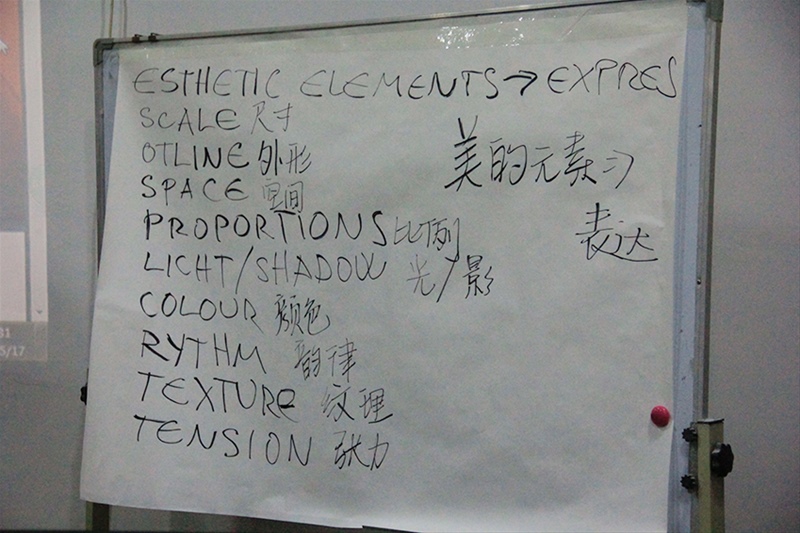 ESTHETIC ELEMENTS → EXPRES
SCALE 尺寸
OTLINE 外形
美的元素⇒
SPACE 空间
PROPORTIONS 比例
表达
LICHT/SHADOW 光/影
COLOUR 颜色
RYTHM 韵律
TEXTURE 纹理
TENSION 张力
31
5/17